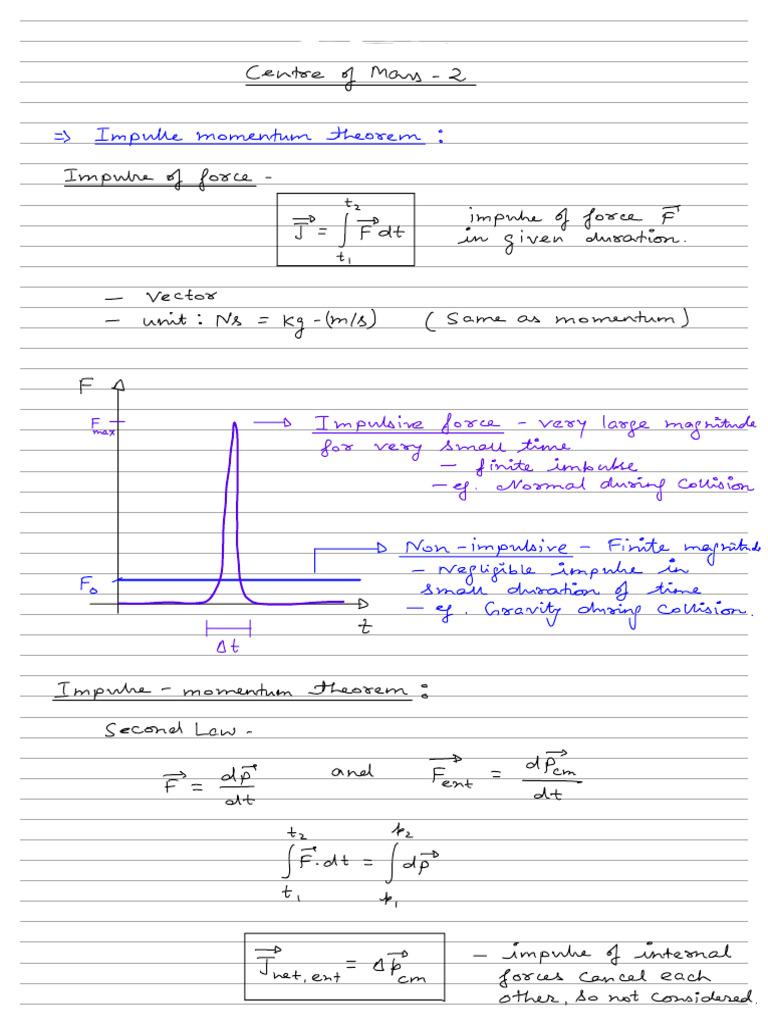 Centre of Mass - 2
⇒ Impulse momentum theorem :
Impulse of force -
J⃗ = ∫_{t₁}^{t₂} F⃗ dt
impulse of force F⃗
in given duration.
- Vector
- unit : Ns = kg-(m/s) (Same as momentum)
F
F max
→ Impulsive force - very large magnitude
for very small time
- finite impulse
- eg. Normal during Collision
→ Non-impulsive - Finite magnitude
- Negligible impulse in
small duration of time
- eg. Gravity during Collision.
F₀
t
Δt
Impulse - momentum theorem :
Second Law -
F⃗ = dp⃗/dt and F⃗ext = dP⃗cm/dt
∫_{t₁}^{t₂} F⃗.dt = ∫_{p₁}^{p₂} dp⃗
J⃗net,ext = Δp⃗cm
- impulse of internal
forces cancel each
other, so not considered.